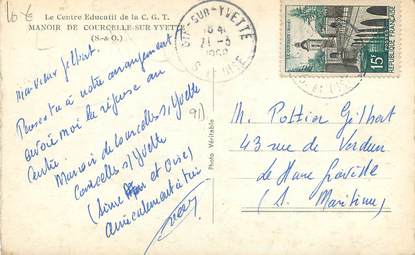 10 €
Le Centre Educatif de la C. G. T.
MANOIR DE COURCELLE-SUR-YVETTE
(S.-&-O.)
Mon vieux Gilbert.
Penses tu à notre arrangement
envoie moi la réponse au
Centre.
Manoir de Courcelles s/Yvette
Courcelles s/Yvette
(Seine et Oise)
Amicalement à toi
91)
Photo Véritable
GIF-SUR-YVETTE
21-3
S. & OISE
15F
M. Pottier Gilbert
43 rue de Verdun
Le Havre Graville
(S. Maritime)